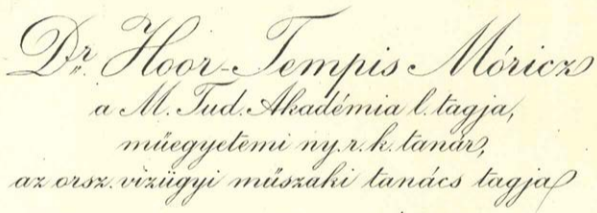 Dr. Hoor-Tempis Móricz
a M. Tud. Akadémia l. tagja,
műegyetemi ny. r. k. tanár,
az orsz. vizügyi műszaki tanács tagja